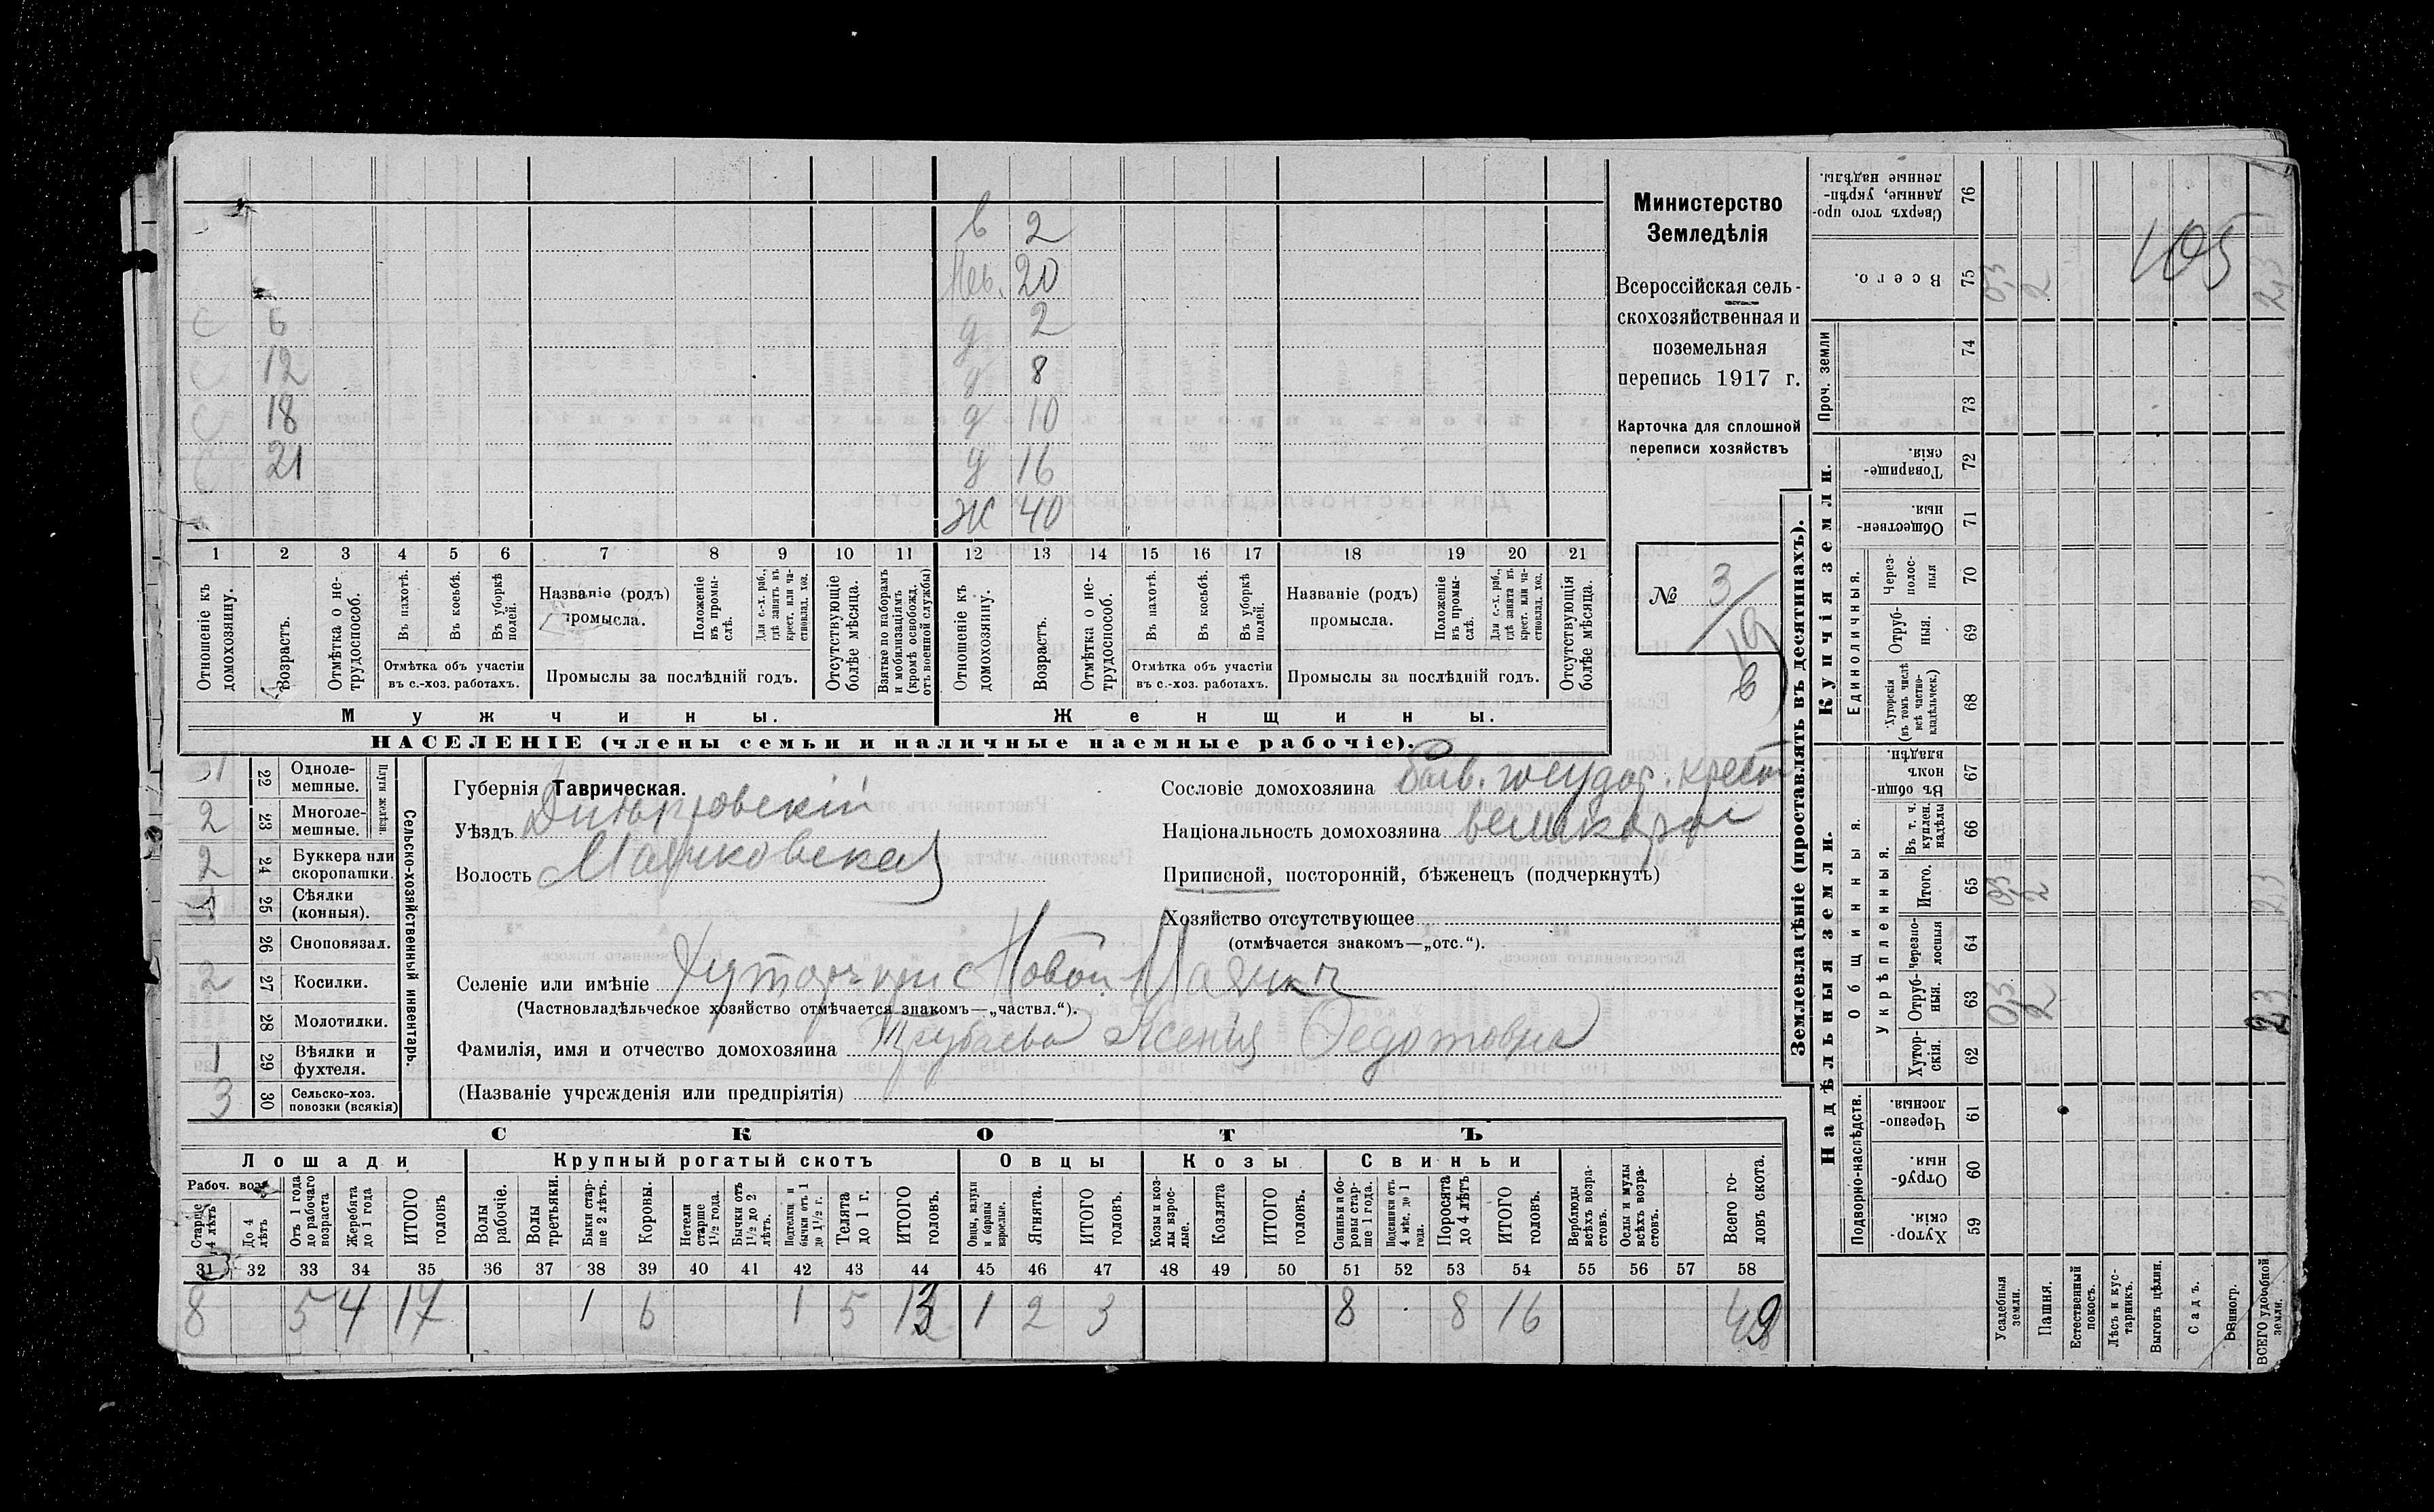 в 2
Нев. 20
с 6 д 2
с 12 д 8
с 18 д 10
с 21 д 16
Ж 40
1 2 3 4 5 6 7 8 9 10 11 12 13 14 15 16 17 18 19 20 21
Отношеніе къ домохозяину.
Возрастъ.
Отмѣтка о нетрудоспособ.
Въ пахотѣ.
Въ косьбѣ.
Въ уборкѣ полей.
Отмѣтка объ участіи въ с.-хоз. работахъ.
Названіе (родъ) промысла.
Положеніе въ промыслѣ.
Для с.-х. раб., гдѣ занятъ въ крест. или частновлад. хоз.
Промыслы за послѣдній годъ.
Отсутствующіе болѣе мѣсяца.
Взятые по наборамъ и мобилизаціямъ (кромѣ освобожд. отъ военной службы)
Отношеніе къ домохозяину.
Возрастъ.
Отмѣтка о нетрудоспособ.
Въ пахотѣ.
Въ косьбѣ.
Въ уборкѣ полей.
Отмѣтка объ участіи въ с.-хоз. работахъ.
Названіе (родъ) промысла.
Положеніе въ промыслѣ.
Для с.-х. раб., гдѣ занята въ крест. или частновлад. хоз.
Промыслы за послѣдній годъ.
Отсутствующія болѣе мѣсяца.
Мужчины.
Женщины.
НАСЕЛЕНІЕ (члены семьи и наличные наемные рабочіе).
Министерство
Земледѣлія
Всероссійская сель-
скохозяйственная и
поземельная
перепись 1917 г.
Карточка для сплошной
переписи хозяйствъ
№ 3/19
в
Сельско-хозяйственный инвентарь.
Плуги желѣзн.
1 22 Однолемешные.
2 23 Многолемешные.
2 24 Буккера или скоропашки.
1 25 Сѣялки (конныя).
26 Сноповязал.
2 27 Косилки.
28 Молотилки.
1 29 Вѣялки и фухтеля.
3 30 Сельско-хоз. повозки (всякія)
Губернія Таврическая.
Уѣздъ Днѣпровскій
Волость Маячковская
Сословіе домохозяина крест
Національность домохозяина великорос
Приписной, посторонній, бѣженецъ (подчеркнуть)
Хозяйство отсутствующее
(отмѣчается знакомъ—„отс.“).
Селеніе или имѣніе Хуторъ при с Новой Маячкѣ
(Частновладѣльческое хозяйство отмѣчается знакомъ—„частвл.“).
Фамилія, имя и отчество домохозяина Ксенія Федотовна
(Названіе учрежденія или предпріятія)
СКОТЪ
Лошади Крупный рогатый скотъ Овцы Козы Свиньи
Рабоч. возр.
Старше 4 лѣтъ
До 4 лѣтъ
Отъ 1 года до рабочаго возраста
Жеребята до 1 года
ИТОГО головъ
Волы рабочіе.
Волы третьяки.
Быки старше 2 лѣтъ.
Коровы.
Нетели старше 1½ года.
Бычки отъ 1½ до 2 лѣтъ.
Подтелки и бычки отъ 1 до 1½ г.
Телята до 1 г.
ИТОГО головъ.
Овцы, валухи и бараны взрослые.
Ягнята.
ИТОГО головъ.
Козы и козлы взрослые.
Козлята
ИТОГО головъ.
Свиньи и боровы старше 1 года.
Подсвинки отъ 4 мѣс. до 1 года.
Поросята до 4 лѣтъ
ИТОГО головъ.
Верблюды всѣхъ возрастовъ.
Ослы и мулы всѣхъ возрастовъ.
Всего головъ скота.
31 32 33 34 35 36 37 38 39 40 41 42 43 44 45 46 47 48 49 50 51 52 53 54 55 56 57 58
8 5 4 17 1 6 1 5 13 1 2 3 8 8 16 49
Землевладѣніе (проставлять въ десятинахъ).
Надѣльныя земли.
Купчія земли.
Проч. земли
Подворно-наслѣдств.
Общинныя.
Укрѣпленныя.
Единоличныя.
Сверхъ того проданные, укрѣпленные надѣлы. 76
Всего. 75 0,3 2 2,3
105
74
73
Товарищескія. 72
Общественныя. 71
Черезполосныя 70
Отрубныя. 69
Хуторскія (въ томъ числѣ всѣ частновладѣльческ.) 68
Въ общинномъ владѣн. 67
Въ т. ч. куплен. надѣлы 66
Итого. 65 0,3 2 2,3
Черезполосныя 64
Отрубныя. 63 0,3 2 2,3
Хуторскія. 62
Черезполосныя. 61
Отрубныя. 60
Хуторскія. 59
Усадебныя земли.
Пашня.
Естественный покосъ.
Лѣсъ и кустарникъ.
Выгонъ цѣлин.
Садъ.
Виногр.
ВСЕГО удобной земли.